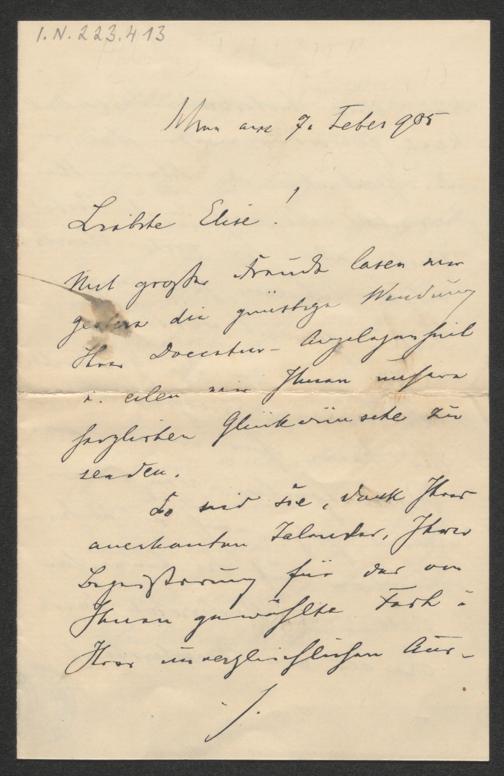 I.N. 223.413
Wien am 7. Feber 905
Liebste Elise!
Mit großer Freude lasen wir
gestern die günstige Wendung
Ihrer Docentur-Angelegenheit
u. eilen wir Ihnen unsere
herzlichen Glückwünsche zu
senden.
So sind Sie, dank Ihres
anerkannten Talentes, Ihrer
Begeisterung für das von
Ihnen gewählte Fach u
Ihrer unvergleichlichen Aus-